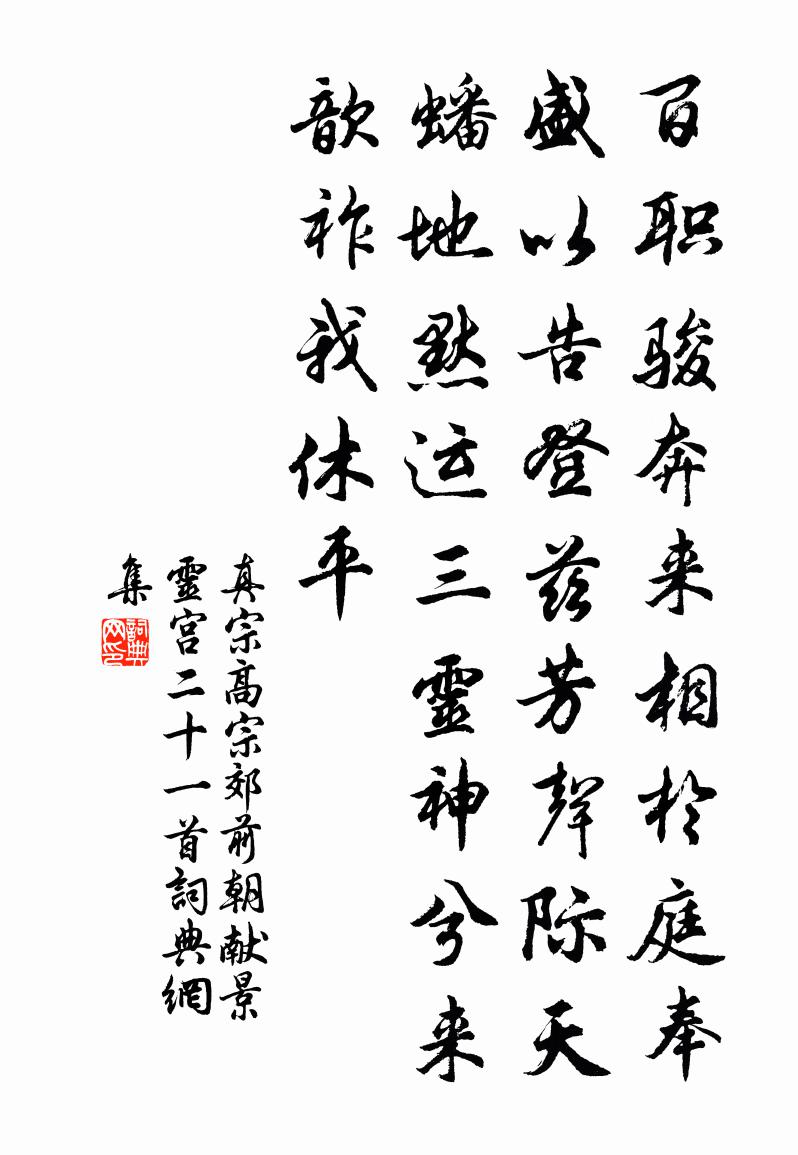 百职骏奔来相于庭奉
盛以告登兹芳声际天
蟠地默运三靈神兮来
歆祚我休平
真宗高宗郊前朝献景
靈宫二十一首詞典網
集
詞典网印